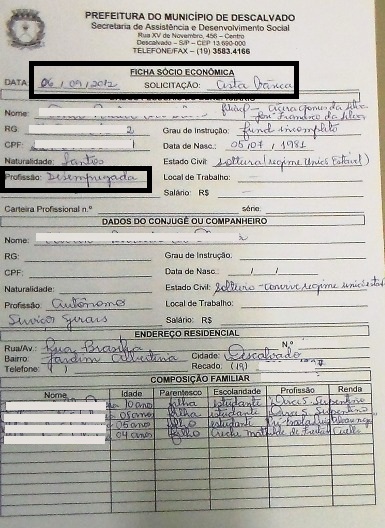 PREFEITURA DO MUNICÍPIO DE DESCALVADO
Secretaria de Assistência e Desenvolvimento Social
Rua XV de Novembro, 456 – Centro
Descalvado – S/P – CEP 13.690-000
TELEFONE/FAX – (19) 3583.4166
FICHA SÓCIO ECONÔMICA
DATA: 06/09/2012 SOLICITAÇÃO: Cesta básica
Nome: filiação - da Silva
José Francisco da Silva
RG: 2 Grau de Instrução: fund incompleto
CPF: Data de Nasc.: 05/07/1981
Naturalidade: Santos Estado Civil: solteira (regime União Estável)
Profissão: Desempregada Local de Trabalho: —
Salário: R$ —
Carteira Profissional n.º série.
DADOS DO CONJUGÊ OU COMPANHEIRO
Nome:
RG: Grau de Instrução:
CPF: Data de Nasc.: / /
Naturalidade: Estado Civil: solteiro - regime
Profissão: Autônomo Local de Trabalho:
Serviços Gerais Salário: R$
ENDEREÇO RESIDENCIAL
Rua/Av.: Rua Brasília N.º
Bairro: Jardim Albertina Cidade: Descalvado
Telefone: Recado: (19)
COMPOSIÇÃO FAMILIAR
Nome Idade Parentesco Escolaridade Profissão Renda
10 ano filha estudante
05 anos filha estudante
05 anos filho estudante
04 anos filho Creche de